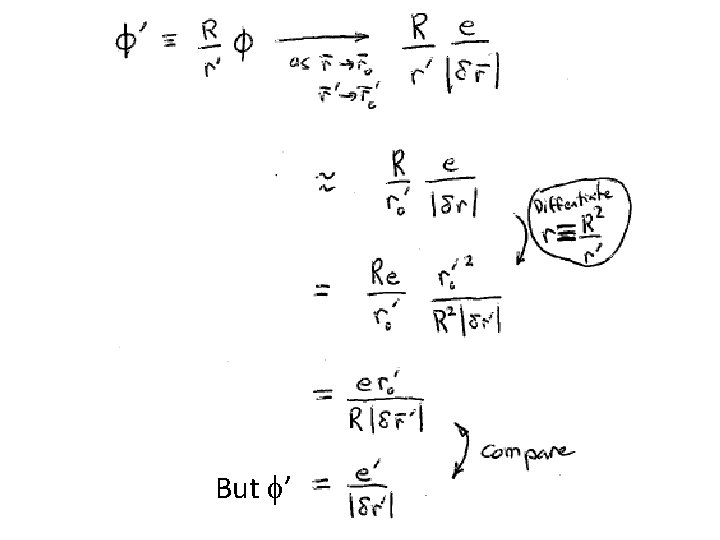 ϕ′ ≡ R/r′ ϕ ⟶ R/r′ e/|δr̄|
as r̄→r̄₀
r̄′→r̄₀′
≈ R/r₀′ e/|δr|
Differtiate
r≡R²/r′
= Re/r₀′ r₀′²/R²|δr′|
= er₀′/R|δr̄′|
compare
But ϕ′ = e′/|δr′|